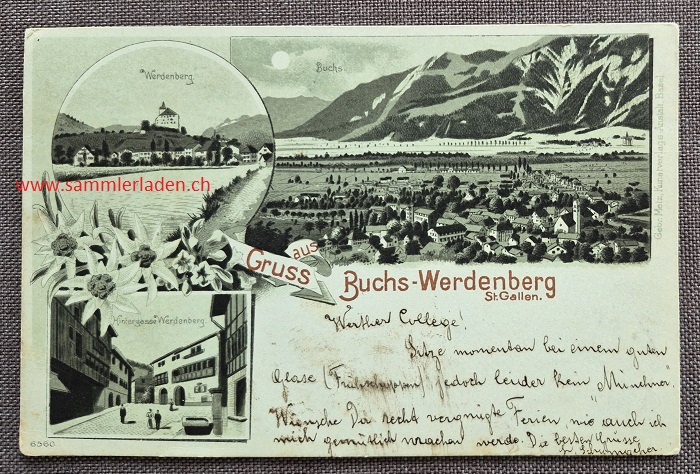 Werdenberg.
Buchs.
www.sammlerladen.ch
Gebr. Metz, Kunstverlags-Anstalt, Basel.
Gruss aus
Buchs-Werdenberg
St. Gallen.
Hintergasse Werdenberg.
Werther College!
Sitze momentan bei einem guten
Glase (Frühschoppen) jedoch leider kein "Münchner"
Wünsche Dir recht vergnügte Ferien, wie auch ich
mich gemütlich machen werde. Die besten Grüsse
Schumacher
6960